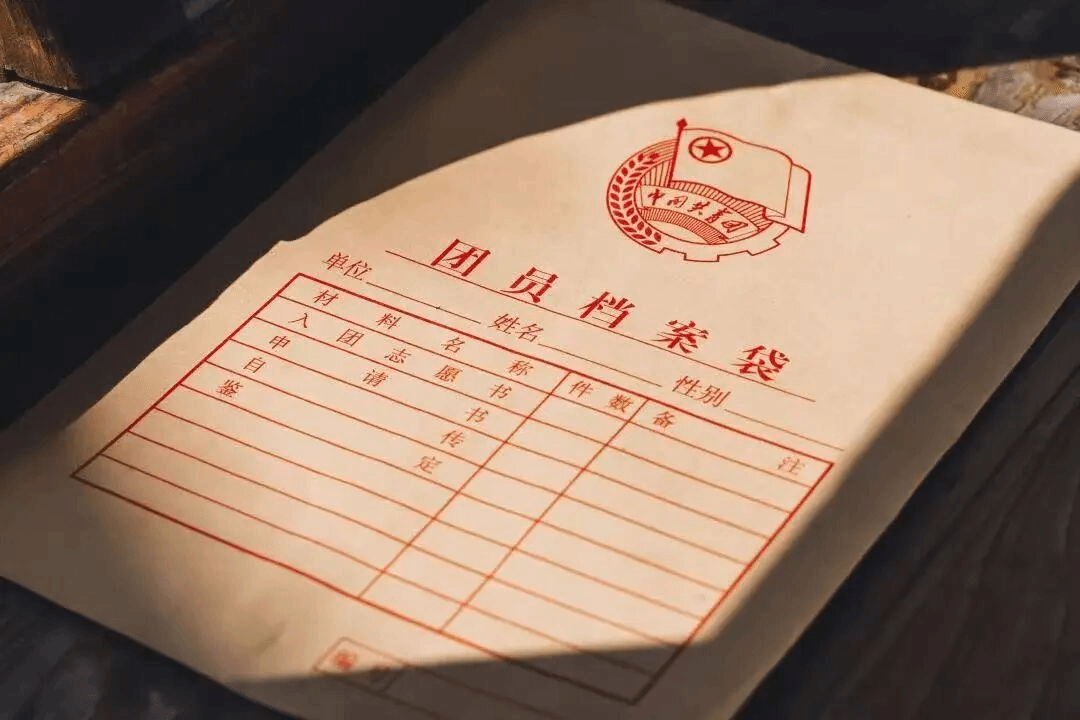 中国共青团
团员档案袋
单位 姓名 性别
材料名称 件数 备注
入团志愿书
申请书
自传
鉴定
编